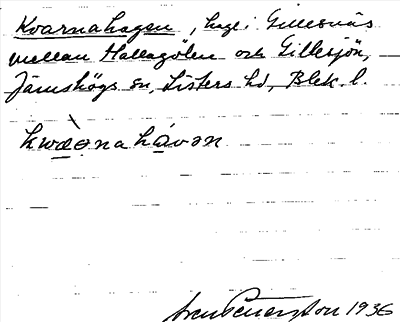 Kvarnahagen, hage i Gillesnäs
mellan Hallagölen och Gillesjön,
Jämshögs sn, Listers hd, Blek. l.
kwæ̀ǝnahávǝn
1936